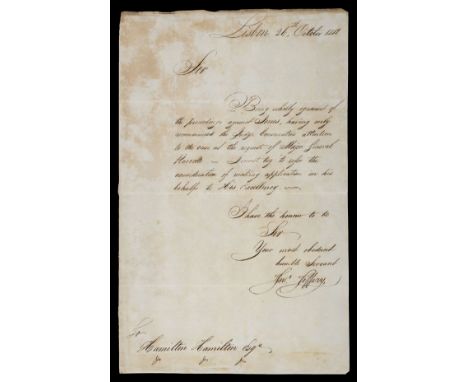 Lisbon 26th October
Sir
Being wholly ignorant of
the proceedings against Torres, having only
recommended the Judge Conservators attention
to the case at the request of Major General
I must beg to refer the
consideration of making application in his
behalf to His Excellency
I have the honor to be
Sir
Your most obedient
humble Servant
Jeffery
To
Hamilton Hamilton Esqe
&c &c &c